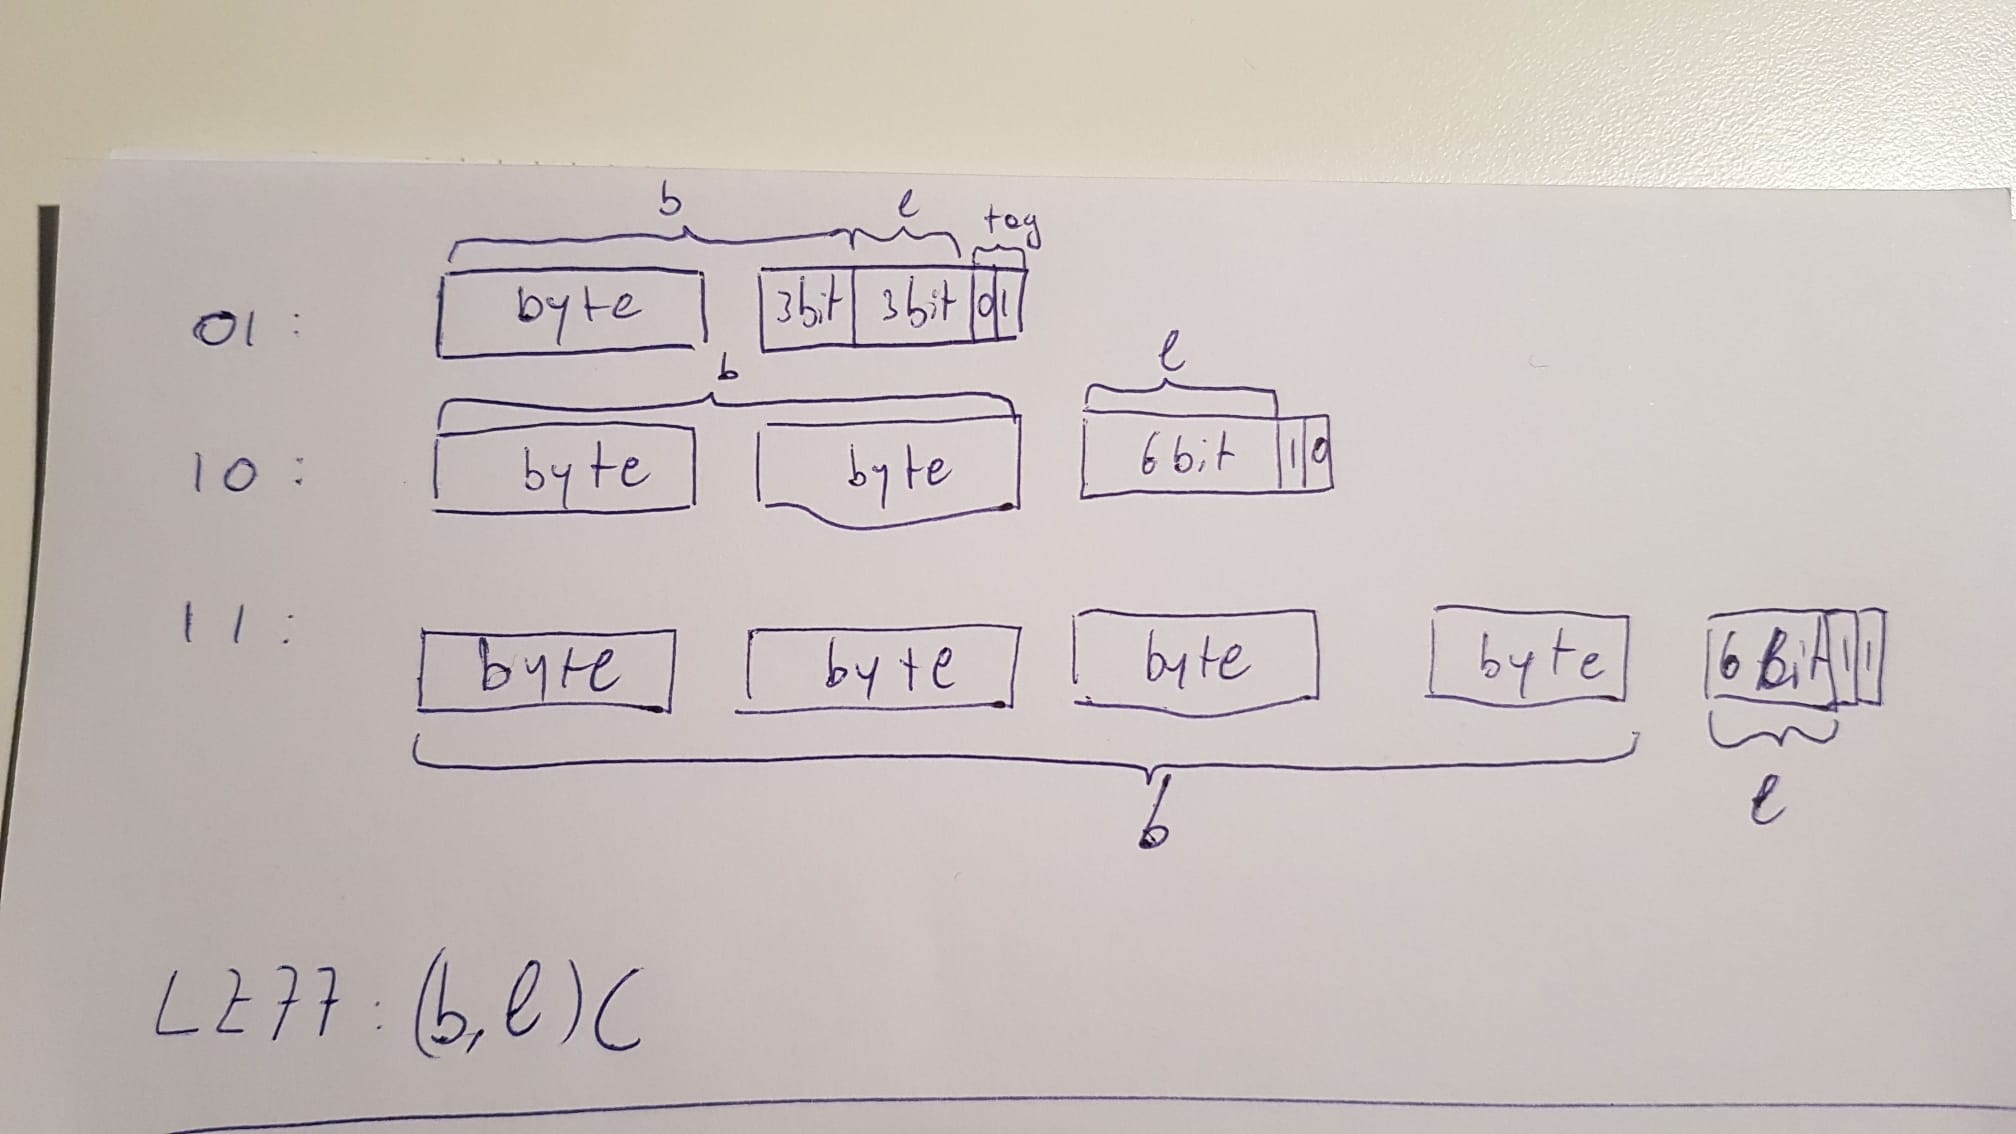 b e tag
01: byte 3bit 3bit 0 1
b e
10: byte byte 6bit 1 0
11: byte byte byte byte 6Bit 1 1
b e
LZ77: (b, e) C